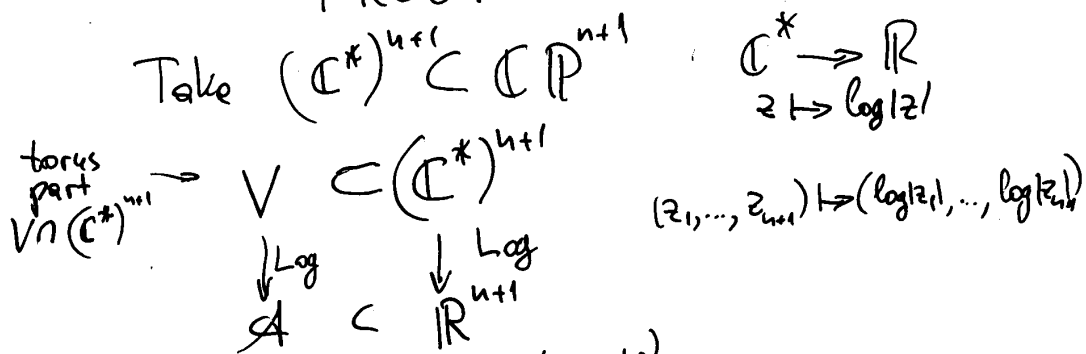 Take (ℂ*)ⁿ⁺¹ ⊂ ℂℙⁿ⁺¹
ℂ* → ℝ
z ↦ log|z|
torus
part
V∩(ℂ*)ⁿ⁺¹ → V ⊂ (ℂ*)ⁿ⁺¹
(z₁,..., zₙ₊₁) ↦ (log|z₁|,.., log|zₙ₊₁|)
↓Log ↓Log
𝒜 ⊂ ℝⁿ⁺¹